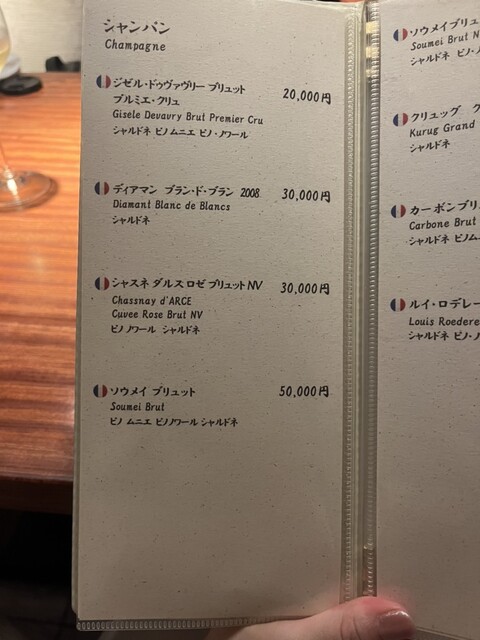 シャンパン
Champagne
ジゼル・ドゥヴァヴリー ブリュット 20,000円
プルミエ・クリュ
Gisele Devavry Brut Premier Cru
シャルドネ ピノムニエ ピノ・ノワール
ディアマン ブラン・ド・ブラン 2008 30,000円
Diamant Blanc de Blancs
シャルドネ
シャスネ ダルス ロゼ ブリュット NV 30,000円
Chassnay d'ARCE
Cuvee Rose Brut NV
ピノ ノワール シャルドネ
ソウメイ ブリュット 50,000円
Soumei Brut
ピノ ムニエ ピノノワール シャルドネ
ソウメイブリュ
Soumei Brut N
シャルドネ ピノ・
クリュッグ
Kurug Grand
シャルドネ
カーボンブリ
Carbone Brut
シャルドネ ピノム
ルイ・ロデレー
Louis Roedere
シャルドネ ピノ・